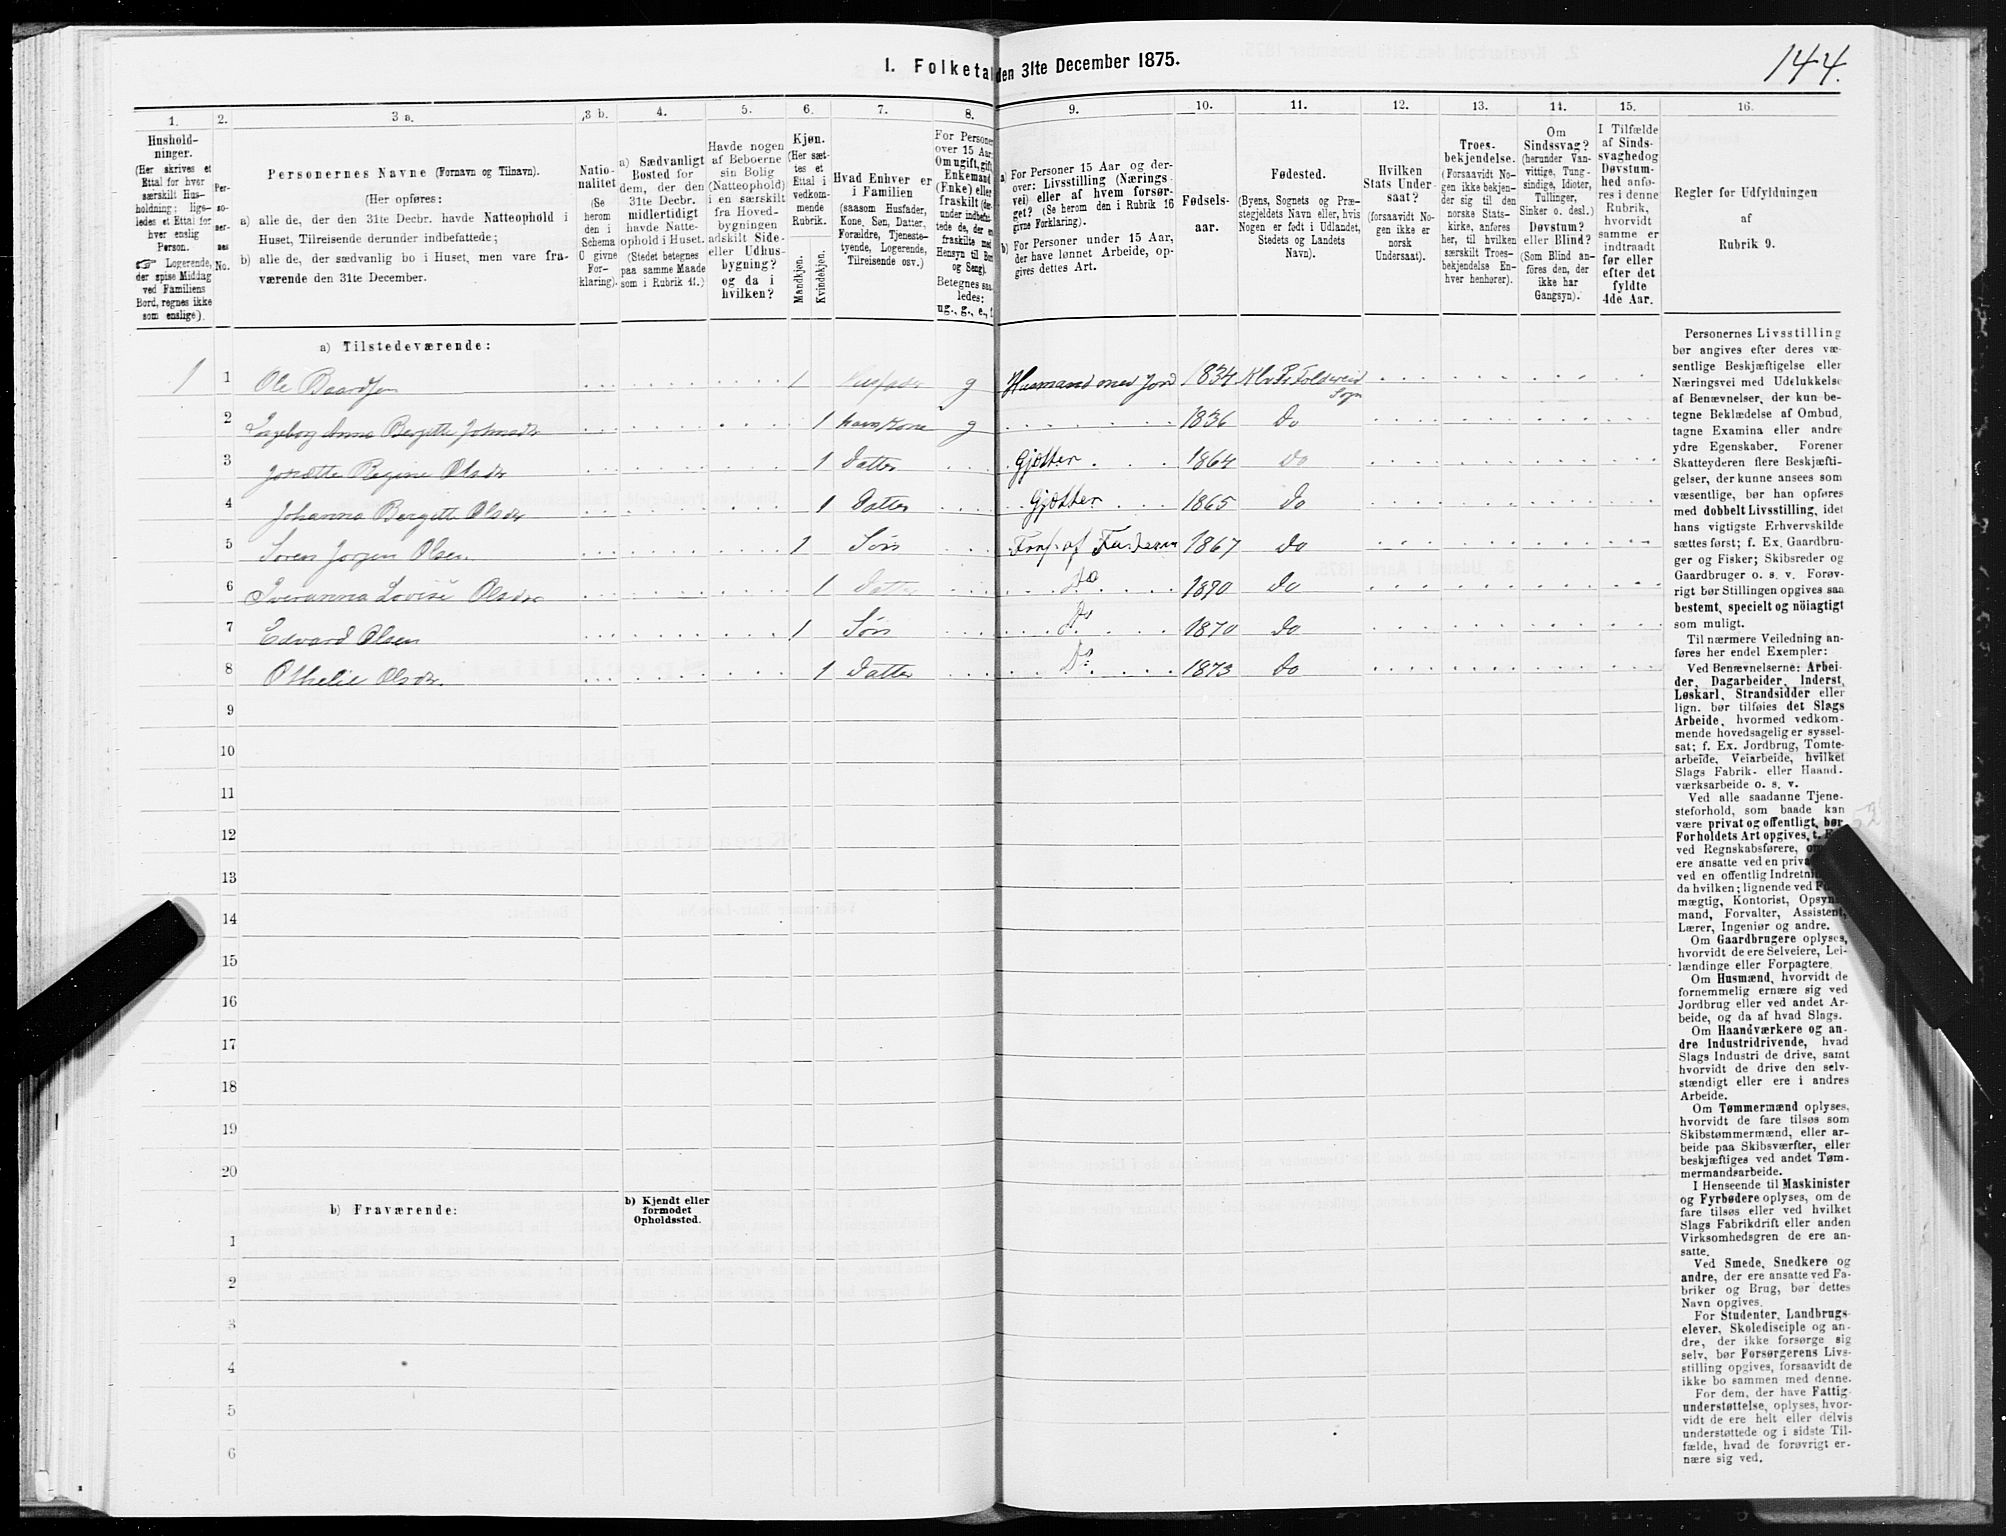 144.
I. Folketal den 31te December 1875.
1. 2. 3 a. 3 b. 4. 5. 6. 7. 8. 9. 10. 11. 12. 13. 14. 15. 16.
Hushold-
ninger.
(Her skrives et
Ettal for hver
særskilt Hus-
holdning; lige-
ledes et Ettal for
hver enslig
Person.
☞ Logerende,
der spise Middag
ved Familiens
Bord, regnes ikke
som enslige).
Per-
so-
ner-
nes
No.
Personernes Navne (Fornavn og Tilnavn).
(Her opføres:
a) alle de, der den 31te Decbr. havde Natteophold i
Huset, Tilreisende derunder indbefattede;
b) alle de, der sædvanlig bo i Huset, men vare fra-
værende den 31te December.
Natio-
nalitet
(Se
herom
den i
Schema
O givne
For-
klaring).
a) Sædvanligt
Bosted for
dem, der den
31te Decbr.
midlertidigt
havde Natte-
ophold i Huset.
(Stedet betegnes
paa samme Maade
som i Rubrik 11.)
Havde nogen
af Beboerne
sin Bolig
(Natteophold)
i en særskilt
fra Hoved-
bygningen
adskilt Side-
eller Udhus-
bygning?
og da i
hvilken?
Kjøn.
(Her sæt-
tes et
Ettal i
vedkom-
mende
Rubrik.
Mandkjøn.
Kvindekjøn.
Hvad Enhver er
i Familien
(saasom Husfader,
Kone, Søn, Datter,
Forældre, Tjeneste-
tyende, Logerende,
Tilreisende osv.)
For Personer
over 15 Aar:
Om ugift, gift,
Enkemand
(Enke) eller
fraskilt (der-
under indbefat-
tede de, der ere
fraskilte med
Hensyn til Bord
og Seng).
Betegnes saa-
ledes:
ug., g., e., f.
a) For Personer 15 Aar og der-
over: Livsstilling (Nærings-
vei) eller af hvem forsør-
get? (Se herom den i Rubrik 16
givne Forklaring).
b) For Personer under 15 Aar,
der have lønnet Arbeide, op-
gives dettes Art.
Fødsels-
aar.
Fødested.
(Byens, Sognets og Præ-
stegjeldets Navn eller, hvis
Nogen er født i Udlandet,
Stedets og Landets
Navn).
Hvilken
Stats Under-
saat?
(forsaavidt No-
gen ikke er
norsk
Undersaat).
Troes-
bekjendelse.
(Forsaavidt No-
gen ikke bekjen-
der sig til den
norske Stats-
kirke, anføres
her, til hvilken
særskilt Troes-
bekjendelse En-
hver henhører).
Om
Sindssvag?
(herunder Van-
vittige, Tung-
sindige, Idioter,
Tullinger,
Sinker o. desl.)
Døvstum?
eller Blind?
(Som Blind an-
føres den, der
ikke har
Gangsyn).
I Tilfælde
af Sinds-
svaghed og
Døvstum-
hed anfø-
res i denne
Rubrik,
hvorvidt
samme er
indtraadt
før eller
efter det
fyldte
4de Aar.
Regler for Udfyldningen
af
Rubrik 9.
a) Tilstedeværende:
1 1 Ole Baardsen 1 Husfader g Husmand med Jord 1834 Klv Pr Foldereid Sogn
2 Ingeborg Anna Bergitte Johnsdr 1 hans Kone g 1836 do
3 Josætte Regine Olsdr 1 Datter Gjætter 1864 do
4 Johanna Bergitte Olsdr 1 Datter Gjætter 1865 do
5 Søren Jørgen Olsen 1 Søn Fors. af Faderen 1867 do
6 Iveranna Lovise Olsdr 1 Datter Do 1870 do
7 Edvard Olsen 1 Søn Do 1870 do
8 Othelie Olsdr. 1 Datter Do 1873 do
9
10
11
12
13
14
15
16
17
18
19
20
b) Fraværende:
b) Kjendt eller
formodet
Opholdssted.
1
2
3
4
5
6
Personernes Livsstilling
bør angives efter deres væ-
sentlige Beskjæftigelse eller
Næringsvei med Udelukkelse
af Benævnelser, der kun be-
tegne Beklædelse af Ombud,
tagne Examina eller andre
ydre Egenskaber. Forener
Skatteyderen flere Beskjæfti-
gelser, der kunne ansees som
væsentlige, bør han opføres
med dobbelt Livsstilling, idet
hans vigtigste Erhvervskilde
sættes først; f. Ex. Gaardbru-
ger og Fisker; Skibsreder og
Gaardbruger o. s. v. Forøv-
rigt bør Stillingen opgives saa
bestemt, specielt og nöiagtigt
som muligt.
Til nærmere Veiledning an-
føres her endel Exempler:
Ved Benævnelserne: Arbei-
der, Dagarbeider, Inderst,
Løskarl, Strandsidder eller
lign. bør tilføies det Slags
Arbeide, hvormed vedkom-
mende hovedsagelig er syssel-
sat; f. Ex. Jordbrug, Tomte-
arbeide, Veiarbeide, hvilket
Slags Fabrik- eller Haand-
værksarbeide o. s. v.
Ved alle saadanne Tjene-
steforhold, som baade kan
være privat og offentligt, bør
Forholdets Art opgives, t. Ex.
ved Regnskabsførere, om
ere ansatte ved en privat
ved en offentlig Indretning
da hvilken; lignende ved Fuld-
mægtig, Kontorist, Opsyns-
mand, Forvalter, Assistent,
Lærer, Ingeniør og andre.
Om Gaardbrugere oplyses,
hvorvidt de ere Selveiere, Lei-
lændinge eller Forpagtere.
Om Husmænd, hvorvidt de
fornemmelig ernære sig ved
Jordbrug eller ved andet Ar-
beide, og da af hvad Slags.
Om Haandværkere og an-
dre Industridrivende, hvad
Slags Industri de drive, samt
hvorvidt de drive den selv-
stændigt eller ere i andres
Arbeide.
Om Tømmermænd oplyses,
hvorvidt de fare tilsøs som
Skibstømmermænd, eller ar-
beide paa Skibsværfter, eller
beskjæftiges ved andet Tøm-
mermandsarbeide.
I Henseende til Maskinister
og Fyrbødere oplyses, om de
fare tilsøs eller ved hvilket
Slags Fabrikdrift eller anden
Virksomhedsgren de ere an-
satte.
Ved Smede, Snedkere og
andre, der ere ansatte ved Fa-
briker og Brug, bør dettes
Navn opgives.
For Studenter, Landbrugs-
elever, Skoledisciple og an-
dre, der ikke forsørge sig
selv, bør Forsørgerens Livs-
stilling opgives, forsaavidt de
ikke bo sammen med denne.
For dem, der have Fattig-
understøttelse, oplyses, hvor-
vidt de ere helt eller delvis
understøttede og i sidste Til-
fælde, hvad de forøvrigt er-
nære sig ved.